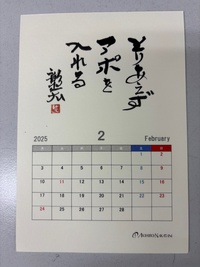 とりあえず
アポを
入れる
2025
2
February
1 2
3 4 5 6 7 8 9
10 11 12 13 14 15 16
17 18 19 20 21 22 23
24 25 26 27 28